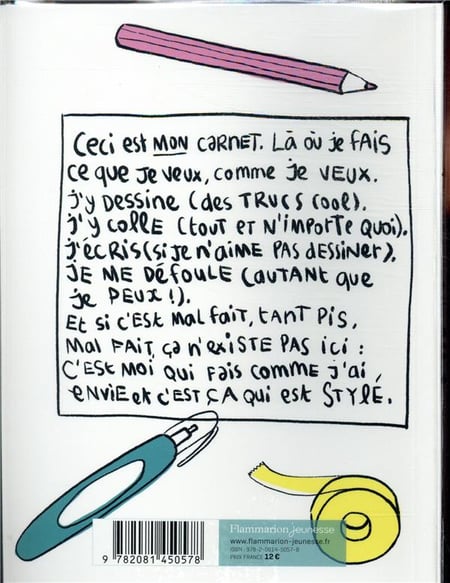 Ceci est MON carnet. Là où je fais
ce que je veux, comme je veux.
J'y dessine (des trucs cool).
J'y colle (tout et n'importe quoi).
J'écris (si je n'aime pas dessiner).
Je me défoule (autant que
je peux !).
Et si c'est mal fait, tant pis,
mal fait, ça n'existe pas ici :
c'est moi qui fais comme j'ai
envie et c'est ça qui est stylé.
Flammarion jeunesse
www.flammarion-jeunesse.fr
ISBN : 978-2-0814-5057-8
PRIX FRANCE 12 €
9 782081 450578